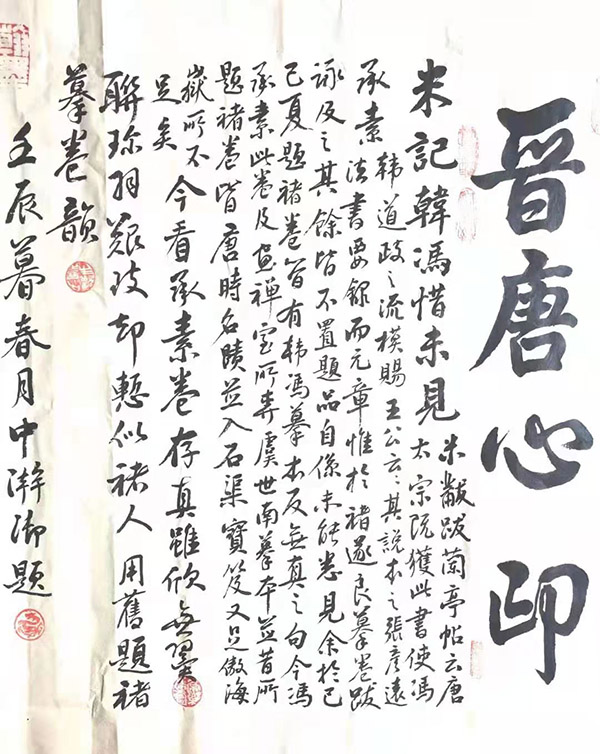 晉唐心印
米記韓馮惜未見
米黻跋蘭亭帖云唐
太宗既獲此書使馮
承素
韓道政之流模賜王公云云其說本之張彥遠
法書要錄而元章惟於褚遂良摹卷跋
詠及之其餘皆不置題品自係未能悉見余於己
巳夏題褚卷皆有韓馮摹本反無真之句今馮
承素此卷及畫禪室所弆虞世南摹本並昔所
題褚卷皆唐時名蹟並入石渠寶笈又足傲海
嶽所不
足矣
今看承素卷存真雖欣無翼
聯珎羽艱致却慙似褚人用舊題褚
摹卷韻
壬辰暮春月中澣御題